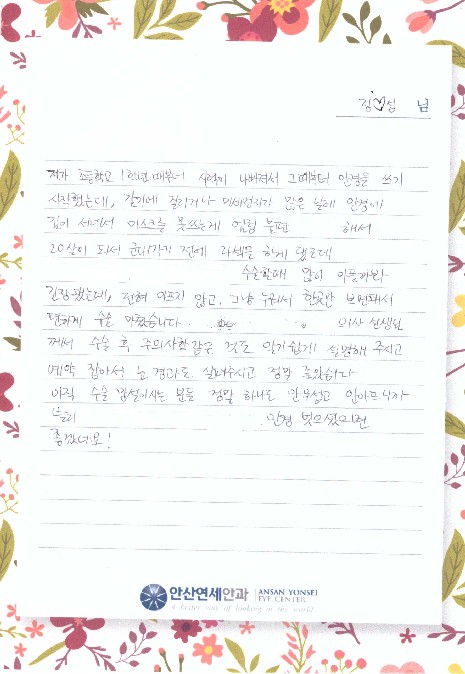 정♡성 님
제가 초등학교 1학년때부터 시력이 나빠져서 그때부터 안경을 쓰기
시작했는데, 감기에 걸리거나 미세먼지가 많은 날에 안경에
김이 서려서 마스크를 못쓰는게 엄청 불편 해서
20살이 되서 군대가기 전에 라섹을 하게 됐는데
수술할때 많이 아플까봐
긴장했는데, 전혀 아프지 않고, 그냥 누워서 한곳만 보면돼서
편하게 수술 마쳤습니다. 의사 선생님
께서 수술 후 주의사항같은 것도 알기쉽게 설명해 주시고
예약 잡아서 눈 경과도 살펴주시고 정말 좋았습니다
아직 수술 망설이시는 분들 정말 하나도 안무섭고 안아프니까
빨리 안경 벗으셨으면
좋겠네요!
안산연세안과 ANSAN YONSEI
EYE CENTER
A better way of looking at the world